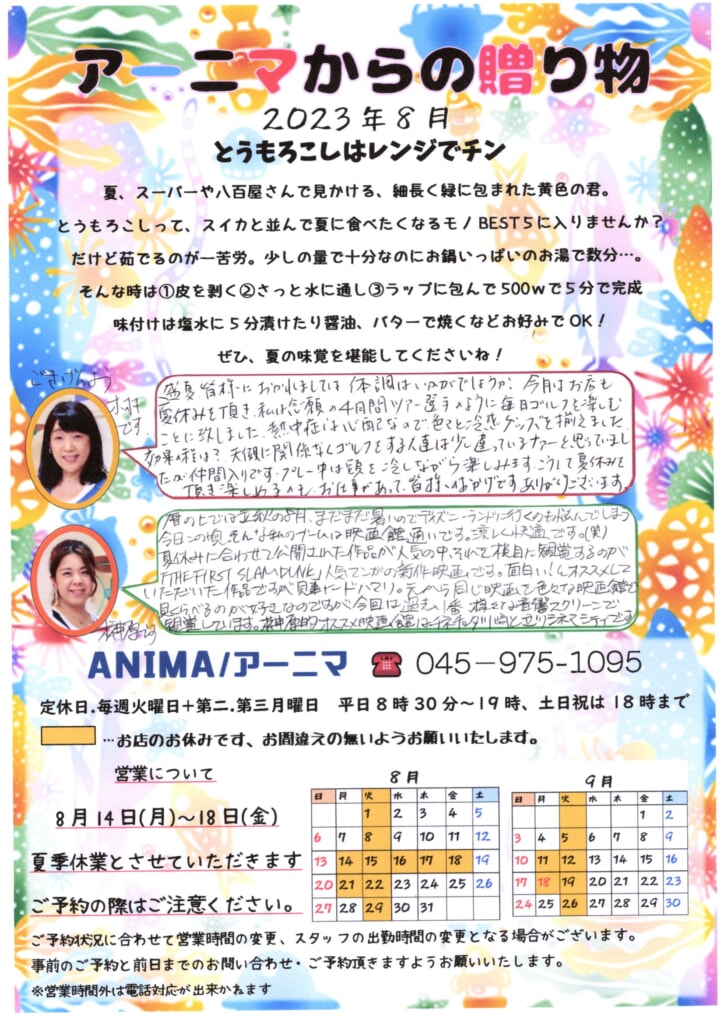 アーニマからの贈り物
2023年8月
とうもろこしはレンジでチン
夏、スーパーや八百屋さんで見かける、細長く緑に包まれた黄色の君。
とうもろこしって、スイカと並んで夏に食べたくなるモノBEST5に入りませんか?
だけど茹でるのが一苦労。少しの量で十分なのにお鍋いっぱいのお湯で数分…。
そんな時は①皮を剥く②さっと水に通し③ラップに包んで500wで5分で完成
味付けは塩水に5分漬けたり醤油、バターで焼くなどお好みでOK!
ぜひ、夏の味覚を堪能してくださいね!
ごきげんよう
です
盛夏、皆様におかれましては体調はいかがでしょうか?今月はお店も
夏休みを頂き、私は念願の4日間ツアー選手のように毎日ゴルフを楽しむ
ことに致しました。熱中症は心配なので色々と冷感グッズを揃えました。
効果の程は?天候に関係なくゴルフをする人達は少し違っているナァーと思っていまし
たが仲間入りです。プレー中は頭を冷しながら楽しみます。こうして夏休みを
頂き楽しめるのも、お仕事があって、皆様のおかげですありがとうございます。
暦の上では立秋の8月、まだまだ暑いのでディズニーランドに行くのも悩んでしまう
今日この頃。そんな私のブームは映画館通いです。涼しく快適です。(笑)
夏休みに合わせて公開された作品が人気の中、それを横目に観賞するのが
「THE FIRST SLAMDUNK」人気マンガの新作映画です。面白い!とオススメして
いただいた作品ですが見事にドハマり。元から同じ映画を色々な映画館で
見くらべるのが好きなのですが今回は過去1番、様々な音響、スクリーンで
観賞しています。榊原的オススメ映画館はチネチッタ川崎と立川シネマシティです
榊原です
ANIMA/アーニマ ☎ 045-975-1095
定休日.毎週火曜日+第二.第三月曜日 平日8時30分~19時、土日祝は18時まで
…お店のお休みです、お間違えの無いようお願いいたします。
営業について
8月14日(月)~18日(金)
夏季休業とさせていただきます
ご予約の際はご注意ください。
8月
日 月 火 水 木 金 土
1 2 3 4 5
6 7 8 9 10 11 12
13 14 15 16 17 18 19
20 21 22 23 24 25 26
27 28 29 30 31
9月
日 月 火 水 木 金 土
1 2
3 4 5 6 7 8 9
10 11 12 13 14 15 16
17 18 19 20 21 22 23
24 25 26 27 28 29 30
ご予約状況に合わせて営業時間の変更、スタッフの出勤時間の変更となる場合がございます。
事前のご予約と前日までのお問い合わせ・ご予約頂きますようお願いいたします。
※営業時間外は電話対応が出来かねます